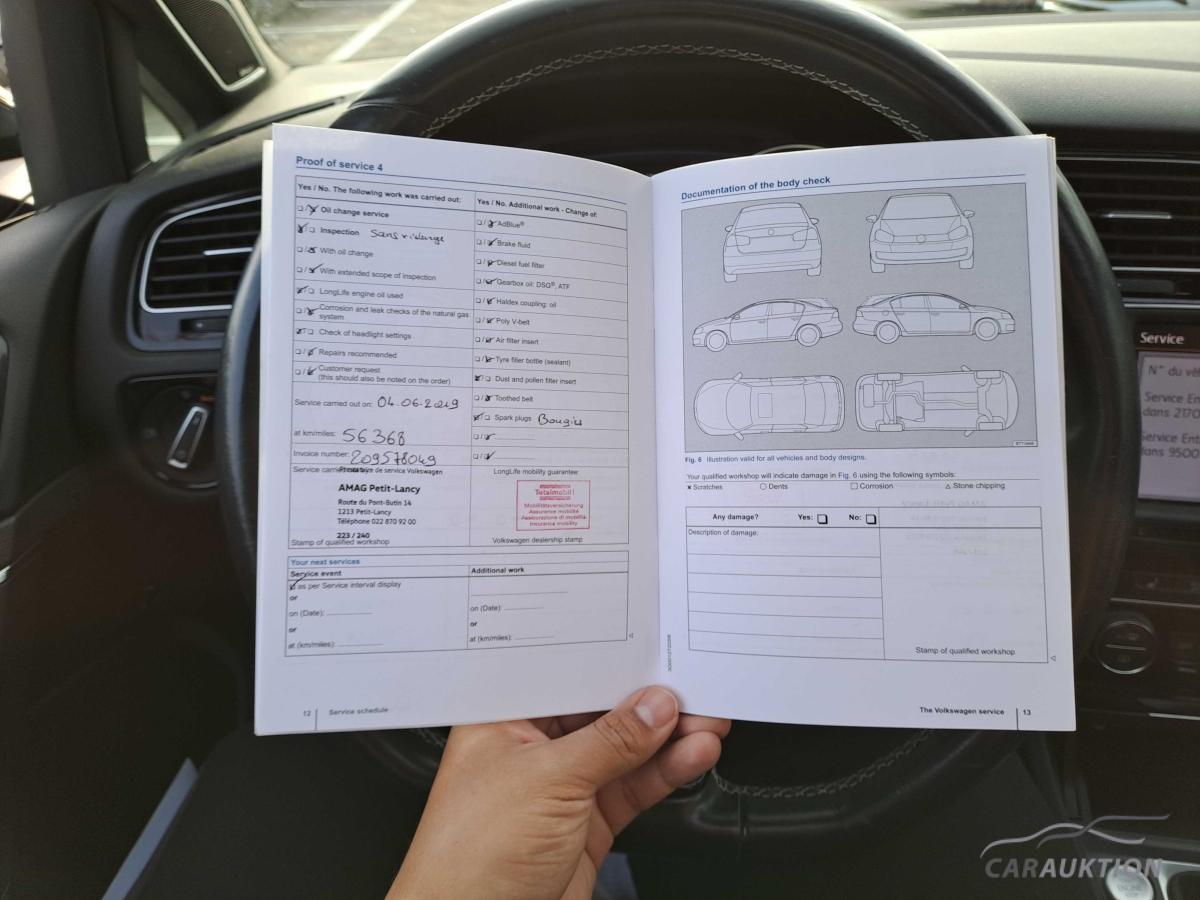 Proof of service 4
Yes / No. The following work was carried out:
Oil change service
Inspection
With oil change
With extended scope of inspection
LongLife engine oil used
Corrosion and leak checks of the natural gas
system
Check of headlight settings
Repairs recommended
Customer request
(this should also be noted on the order)
Service carried out on: 04.06.2019
at km/miles: 56 368
Invoice number: 209578049
AMAG Petit-Lancy
Route du Pont-Butin 14
1213 Petit-Lancy
Téléphone 022 870 92 00
223 / 240
Stamp of qualified workshop
Yes / No. Additional work - Change of:
AdBlue®
Brake fluid
Diesel fuel filter
Gearbox oil: DSG®, ATF
Haldex coupling: oil
Poly V-belt
Air filter insert
Tyre filler bottle (sealant)
Dust and pollen filter insert
Toothed belt
Spark plugs Bougies
LongLife mobility guarantee:
Totalmobil!
Mobilitätsversicherung
Assurance mobilité
Assicurazione di mobilità
Insurance mobility
Volkswagen dealership stamp
Your next services
Service event
as per Service interval display
or
on (Date):
or
at (km/miles):
Additional work
on (Date):
or
at (km/miles):
12 Service schedule
Documentation of the body check
Fig. 6 Illustration valid for all vehicles and body designs.
Your qualified workshop will indicate damage in Fig. 6 using the following symbols:
Scratches Dents Corrosion Stone chipping
Any damage? Yes: No:
Description of damage:
Stamp of qualified workshop
The Volkswagen service 13
Service
N° du vé
Service En
dans 2170
Service Ent
dans 9500
CARAUKTION